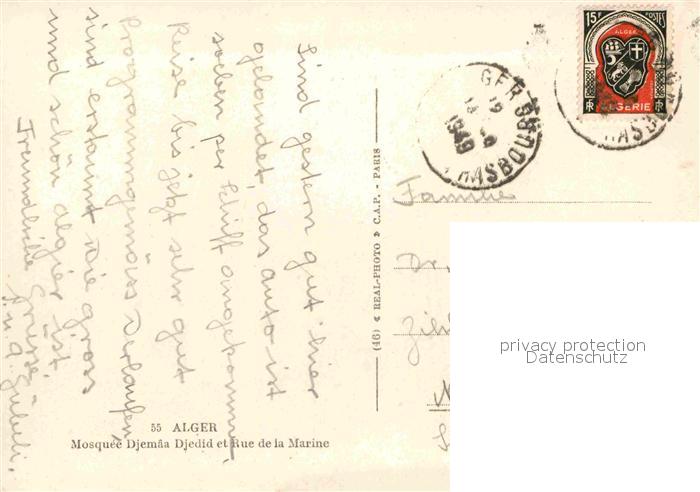 Sind gestern gut hier
gelandet, das auto ist
soeben per Schiff angekommen
Reise bis jetzt sehr gut
programmgmäss verlaufen
sind erstaunt wie gross
und schön algier ist
Freundliche Grüsse
55 ALGER
Mosquée Djemâa Djedid et Rue de la Marine
(46) « REAL-PHOTO » C.A.P. - PARIS
15F POSTES
ALGER
RF ALGÉRIE RF
1949
Familie
privacy protection
Datenschutz